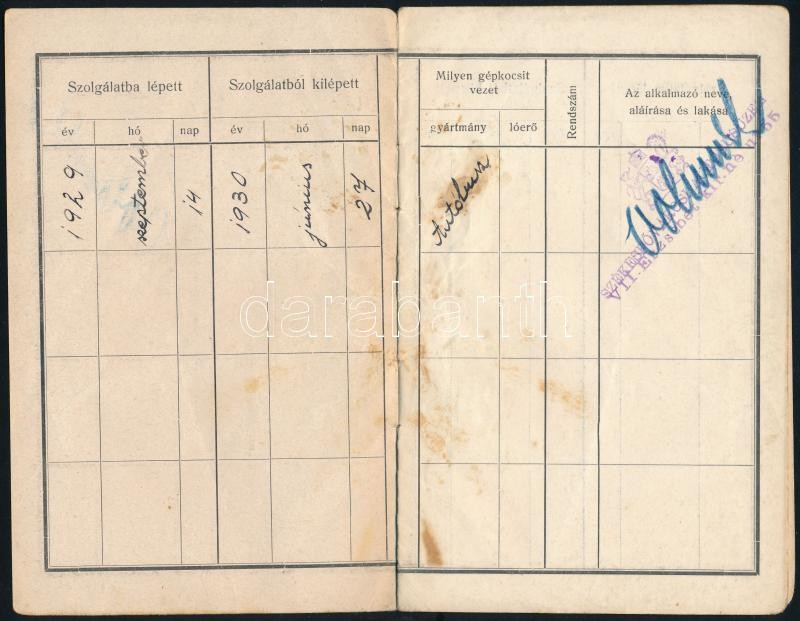 Szolgálatba lépett
Szolgálatból kilépett
év
hó
nap
év
hó
nap
1929
szeptember
14
1930
június
27
Milyen gépkocsit
vezet
gyártmány
lóerő
Rendszám
Az alkalmazó neve,
aláírása és lakása
Autóbusz
VII. Erzsébet
darabanth